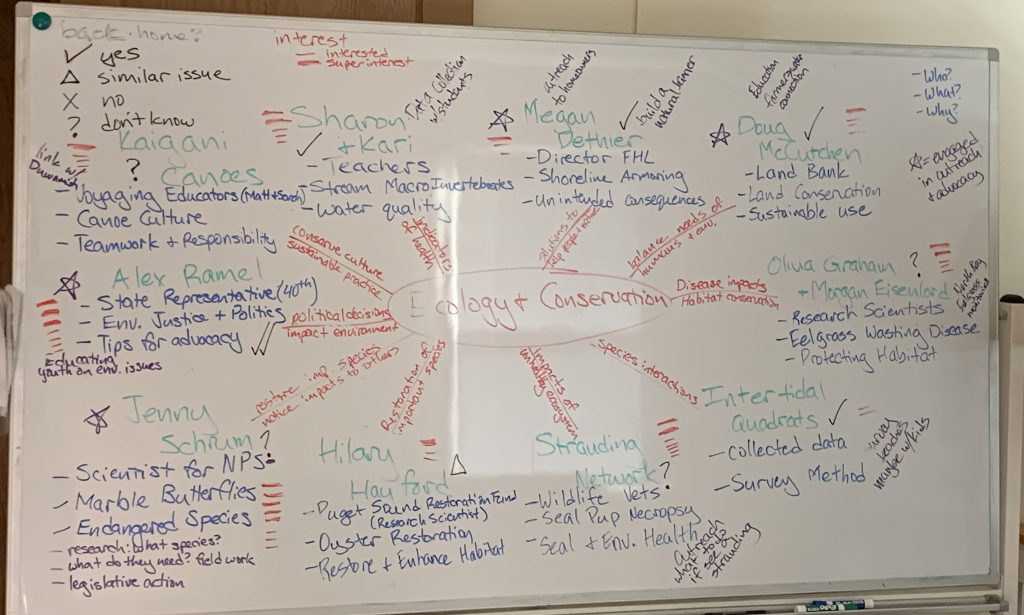 back home?
✓ yes
△ similar issue
X no
? don't know
interest
— interested
= super interest
- Who?
- What?
- Why?
☆ = engaged
in outreach
+ advocacy
Kaigani
Canoes
?
link w/
Duwamish
- Voyaging Educators (Matt + Sarah)
- Canoe Culture
- Teamwork + Responsibility
conserve culture
sustainable practice
Sharon
+ Kari
✓
w/ students
- Teachers
- Stream MacroInvertebrates
- Water quality
indicators
of health
☆ Megan
Dethier
✓
outreach
to homeowners
build a
natural barrier
- Director FHL
- Shoreline Armoring
- Unintended consequences
solutions to
☆ Doug
McCutchen
✓
Education
connection
- Land Bank
- Land Conservation
- Sustainable use
balance needs of
humans + env.
Olivia Graham
+ Morgan Eisenlord
?
- Research Scientists
- Eelgrass Wasting Disease
- Protecting Habitat
Disease impacts
Habitat conservation
Ecology + Conservation
☆ Alex Ramel
- State Representative (40th)
- Env. Justice + Politics
- Tips for advocacy
✓✓
Educating
youth on env. issues
political decisions
impact environment
☆ Jenny
Schrum
?
- Scientist for NPS
- Marble Butterflies
- Endangered Species
- research: what species?
- what do they need? field work
- legislative action
restore imp. species
notice impacts to others
Hilary
Hayford
△
- Puget Sound Restoration Fund
(Research Scientist)
- Oyster Restoration
- Restore + Enhance Habitat
Restoration of
important species
Stranding
Network
?
- Wildlife Vets
- Seal Pup Necropsy
- Seal + Env. Health
stranding
impacts of
unhealthy ecosystem
Intertidal
Quadrats
✓
- Collected data
- Survey Method
survey
beaches
maybe w/kids
species interactions